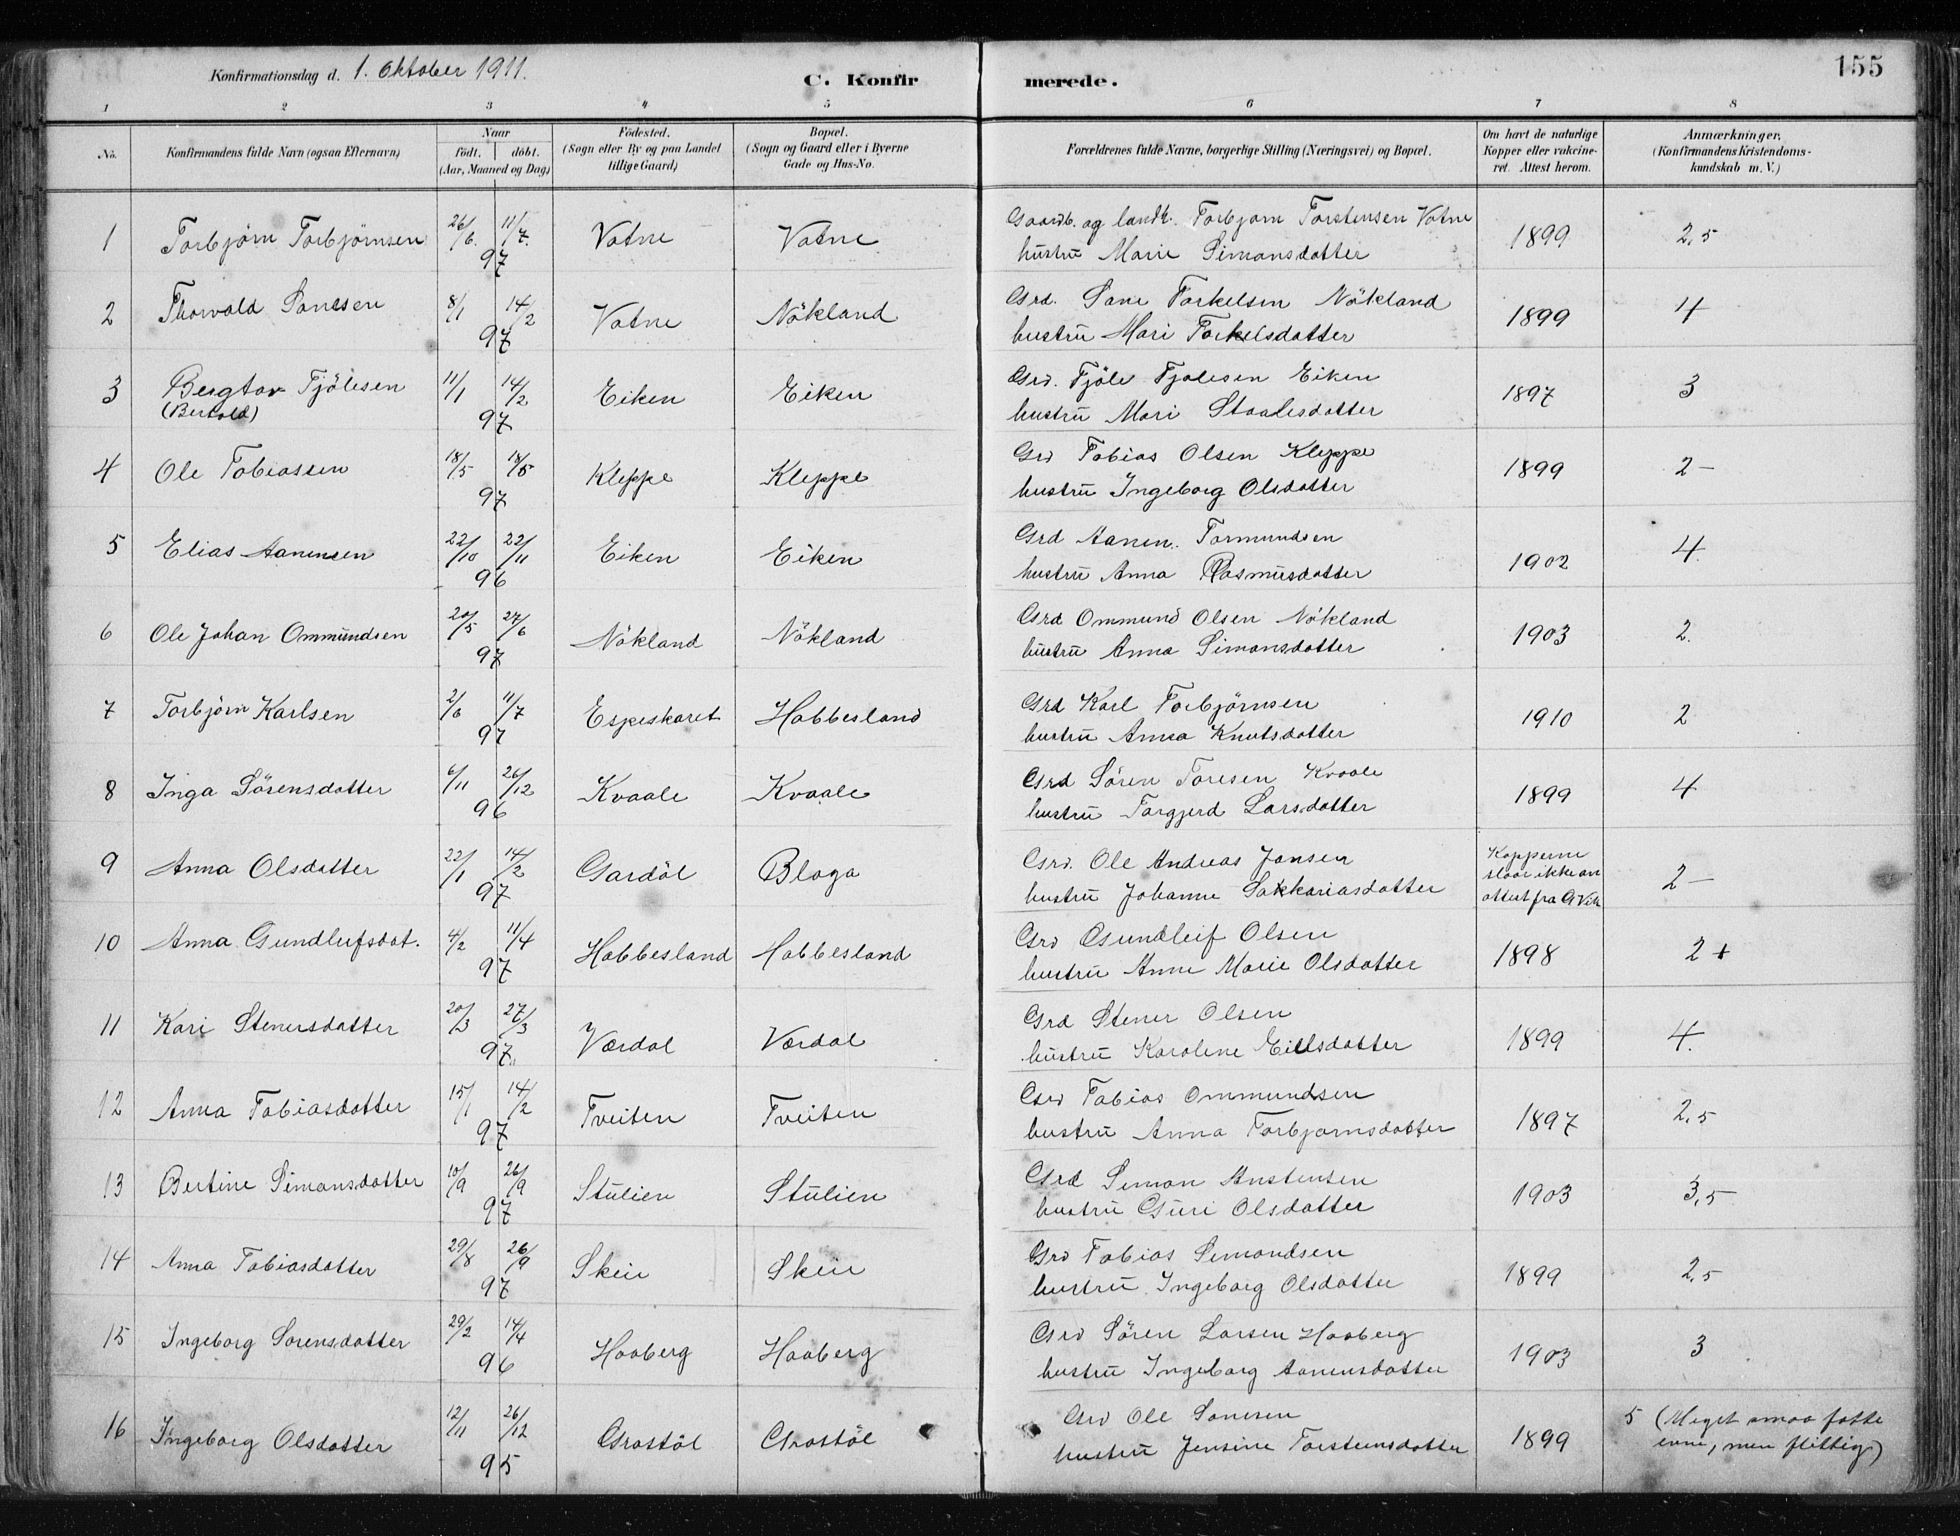 155
Konfirmationsdag d. 1. Oktober 1911.
C. Konfirmerede.
1 2 3 4 5 6 7 8
No.
Konfirmandens fulde Navn (ogsaa Efternavn)
Naar
födt. döbt.
(Aar, Maaned og Dag)
Födested.
(Sogn eller By og paa Landet
tillige Gaard)
Bopæl.
(Sogn og Gaard eller i Byerne
Gade og Hus-No.
Forældrenes fulde Navne, borgerlige Stilling (Næringsvei) og Bopæl.
Om havt de naturlige
Kopper eller vakcine-
ret. Attest herom.
Anmærkninger.
(Konfirmandens Kristendoms-
kundskab m. V.)
1 Torbjörn Torbjörnsen 26/6. 11/7. 97 Vatne Vatne Gaardb. og landh. Torbjørn Torstensen Vatne 1899 2,5
hustru Marie Simonsdatter
2 Thorvald Sanesen 8/1 14/2 97 Vatne Nökland Grd. Sane Torkelsen Nökland 1899 4
hustru Mari Torkelsdatter
3 Bergtor Tjölesen 11/1 14/2 97 Eiken Eiken Grd. Tjöle Tjölesen Eiken 1897 3
(Bertold) hustru Mari Staalesdatter
4 Ole Tobiassen 18/5 18/6 97 Kleppe Kleppe Grd Tobias Olsen Kleppe 1899 2-
hustru Ingeborg Olsdatter
5 Elias Aanensen 22/10 22/11 96 Eiken Eiken Grd Aanen Tormundsen 1902 4.
hustru Anna Rasmusdatter
6 Ole Johan Ommundsen 20/5 27/6 97 Nökland Nökland Grd Ommund Olsen Nökland 1903 2.
hustru Anna Simonsdatter
7 Torbjörn Karlsen 2/6 11/7 97 Espeskaret Habbesland Grd Karl Torbjörnsen 1910 2
hustru Anna Knutsdatter
8 Inga Sörensdatter 6/11 26/12 96 Kvaale Kvaale Grd Sören Toresen Kvaale 1899 4
hustru Torgjerd Larsdatter
9 Anna Olsdatter 22/1 14/2 97 Gardöl Blaga Grd. Ole Andreas Jansen Kopperne
slaar ikke an
attest fra 2-
hustru Johanne Sakkariasdatter
10 Anna Gundleifsdat. 4/2 11/4 97 Habbesland Habbesland Grd Gundleif Olsen 1898 2+
hustru Anne Marie Olsdatter
11 Kari Stenersdatter 20/3 27/3 97 Værdal Værdal Grd Stener Olsen 1899 4.
hustru Karolene Eillsdatter
12 Anna Tobiasdatter 15/1 14/2 97 Tveiten Tveiten Grd Tobias Ommundsen 1897 2,5
hustru Anna Torbjørnsdatter
13 Bertine Simonsdatter 10/9 26/9 97 Stulien Stulien Grd Simon Anstensen 1903 3,5
hustru Guri Olsdatter
14 Anna Tobiasdatter 29/8 26/9 97 Skeie Skeie Grd Tobias Simondsen 1899 2,5
hustru Ingeborg Olsdatter
15 Ingeborg Sorensdatter 29/2 14/4 96 Haaberg Haaberg Grd Sören Larsen Haaberg 1903 3
hustru Ingeborg Aanensdatter
16 Ingeborg Olsdatter 12/11 26/12 95 Grastöl Grastöl Grd Ole Sanesen 1899 5 (Meget smaa fatte
hustru Jensine Torsteinsdatter evne, men flittig)